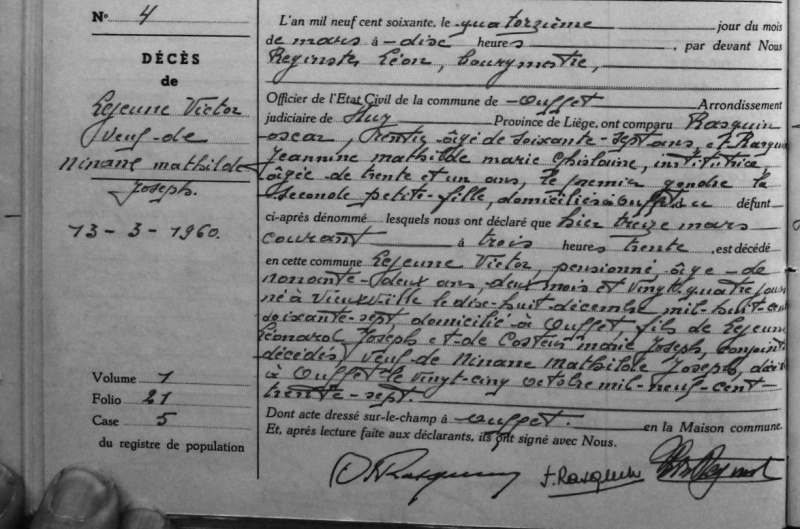 N° 4
DÉCÈS
de
Lejeune Victor
Veuf de
Ninane Mathilde
Joseph.
13-3-1960.
Volume 1
Folio 21
Case 5
du registre de population
L'an mil neuf cent soixante, le quatorzième jour du mois
de mars à dix heures , par devant Nous
Reginster Léon, bourgmestre,
Officier de l'Etat Civil de la commune de Ouffet Arrondissement
judiciaire de Huy Province de Liége, ont comparu Rasquin
oscar, rentier, âgé de soixante-sept ans, et Rasquin
Jeannine Mathilde Marie Ghislaine, institutrice,
âgée de trente et un ans, le premier gendre la
seconde petite-fille, domiciliés à Ouffet du défunt
ci-après dénommé lesquels nous ont déclaré que hier treize mars
courant à trois heures trente , est décédé
en cette commune Lejeune Victor, pensionné, âgé de
nonante-deux ans, deux mois et vingt quatre jours
né à Vieuxville le dix-huit décembre mil-huit-cent
soixante-sept, domicilié à Ouffet, fils de Lejeune
Léonard Joseph et de Marie Joseph, conjoints
décédés, Veuf de Ninane Mathilde Joseph,
à Ouffet le vingt-cinq octobre mil-neuf-cent-
trente-sept
Dont acte dressé sur-le-champ à Ouffet. en la Maison commune.
Et, après lecture faite aux déclarants, ils ont signé avec Nous.
O. Rasquin J. Rasquin